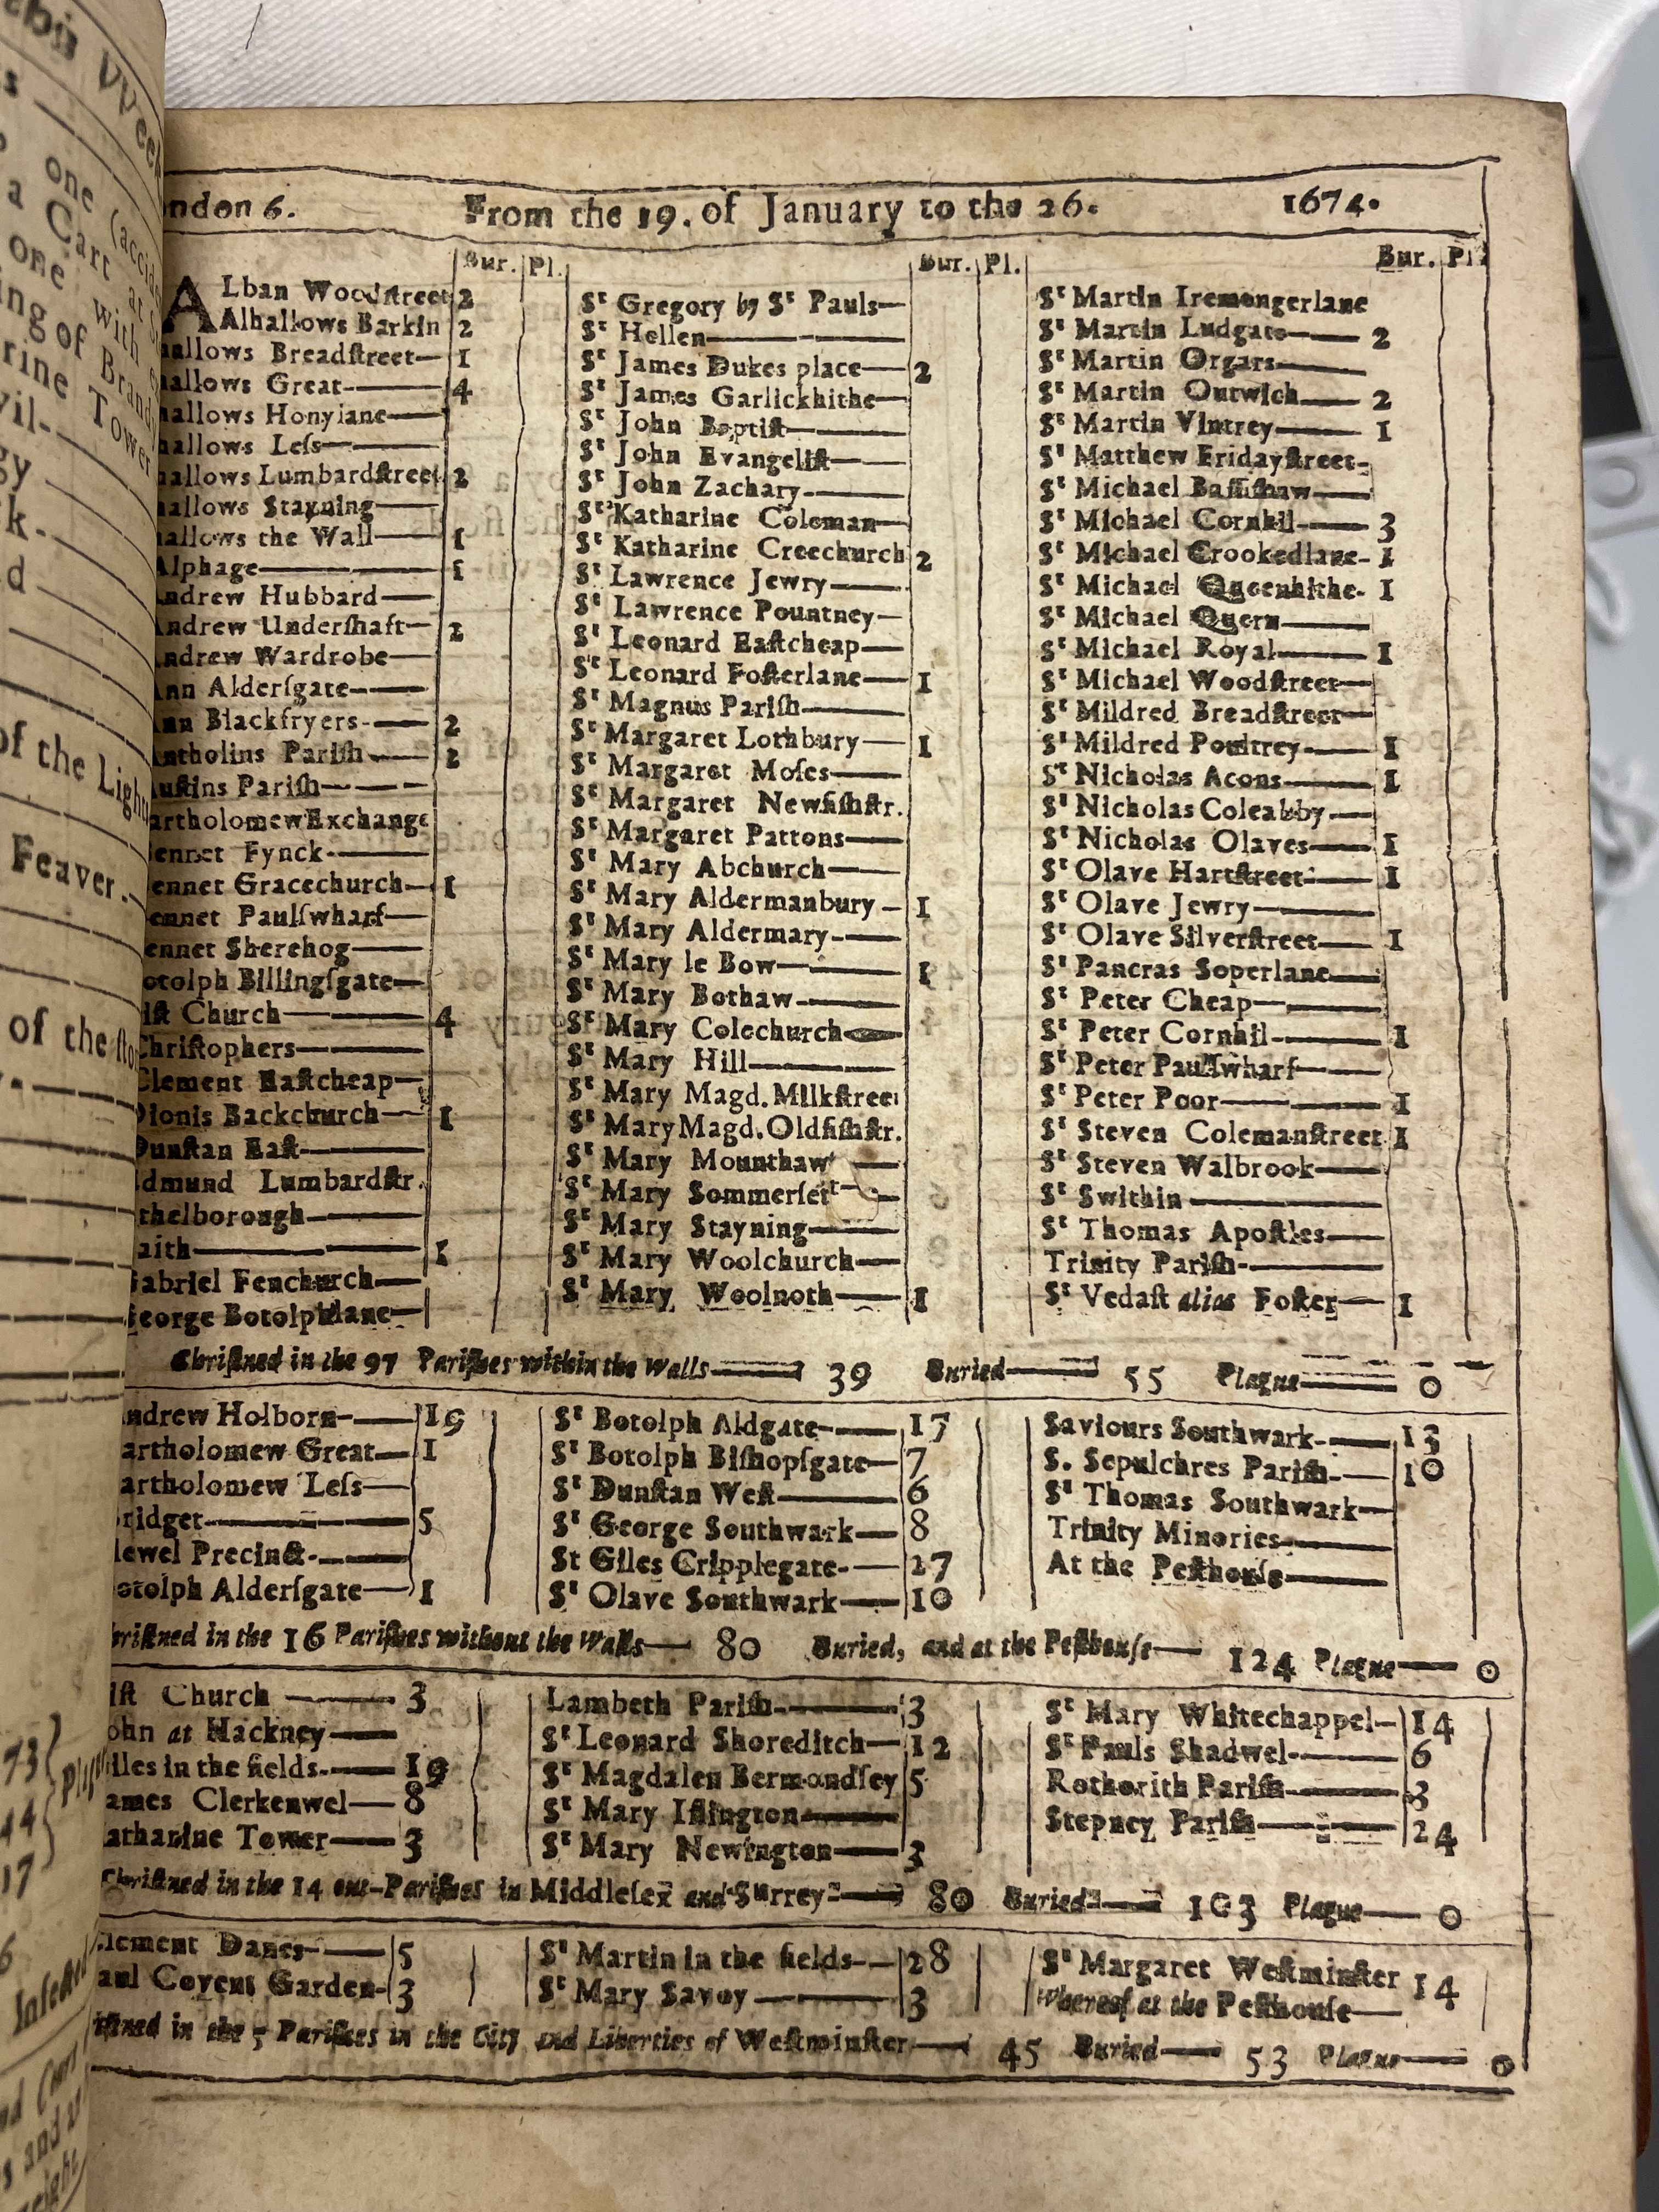 ndon 6. From the 19. of January to the 26. 1674.
Bur. Pl. Bur. Pl. Bur. Pl.
ALban Woodſtreet 2
Alhallows Barkin 2
hallows Breadſtreet— 1
hallows Great— 4
hallows Honylane—
hallows Leſs—
hallows Lumbardſtreet 2
hallows Stayning—
hallows the Wall— 1
Alphage— 1
Andrew Hubbard—
Andrew Underſhaft— 2
Andrew Wardrobe—
Ann Alderſgate—
Ann Blackfryers— 2
Antholins Pariſh— 2
Auſtins Pariſh—
artholomew Exchange
ennet Fynck—
ennet Gracechurch— 1
ennet Paulſwharf—
ennet Sherehog—
otolph Billingſgate—
iſt Church— 4
Chriſtophers—
Clement Eaſtcheap—
Dionis Backchurch— 1
Dunſtan Eaſt—
dmund Lumbardſtr.
thelborough—
aith— 1
Gabriel Fenchurch—
George Botolphlane—
St Gregory by St Pauls—
St Hellen—
St James Dukes place— 2
St James Garlickhithe—
St John Baptiſt—
St John Evangeliſt—
St John Zachary—
St Katharine Coleman—
St Katharine Creechurch 2
St Lawrence Jewry—
St Lawrence Pountney—
St Leonard Eaſtcheap—
St Leonard Foſterlane— 1
St Magnus Pariſh—
St Margaret Lothbury— 1
St Margaret Moſes—
St Margaret Newfiſhſtr.
St Margaret Pattons—
St Mary Abchurch—
St Mary Aldermanbury— 1
St Mary Aldermary—
St Mary le Bow— 1
St Mary Bothaw—
St Mary Colechurch—
St Mary Hill—
St Mary Magd. Milkſtreet
St Mary Magd. Oldfiſhſtr.
St Mary Mounthaw—
St Mary Sommerſet—
St Mary Stayning—
St Mary Woolchurch—
St Mary Woolnoth— 1
St Martin Iremongerlane
St Martin Ludgate— 2
St Martin Orgars—
St Martin Outwich— 2
St Martin Vintrey— 1
St Matthew Fridayſtreet—
St Michael Baſſiſhaw—
St Michael Cornhil— 3
St Michael Crookedlane— 1
St Michael Queenhithe— 1
St Michael Quern—
St Michael Royal— 1
St Michael Woodſtreet—
St Mildred Breadſtreet—
St Mildred Poultrey— 1
St Nicholas Acons— 1
St Nicholas Coleabby—
St Nicholas Olaves— 1
St Olave Hartſtreet— 1
St Olave Jewry—
St Olave Silverſtreet— 1
St Pancras Soperlane—
St Peter Cheap—
St Peter Cornhil— 1
St Peter Paulſwharf—
St Peter Poor— 1
St Steven Colemanſtreet 1
St Steven Walbrook—
St Swithin—
St Thomas Apoſtles—
Trinity Pariſh—
St Vedaſt alias Foſter— 1
Chriſtned in the 97 Pariſhes within the Walls— 39 Buried— 55 Plague— 0
ndrew Holborn— 19
artholomew Great— 1
artholomew Leſs—
ridget— 5
dewel Precinct—
otolph Alderſgate— 1
St Botolph Aldgate— 17
St Botolph Biſhopſgate— 7
St Dunſtan Weſt— 6
St George Southwark— 8
St Giles Cripplegate— 27
St Olave Southwark— 10
Saviours Southwark— 13
S. Sepulchres Pariſh— 10
St Thomas Southwark—
Trinity Minories—
At the Peſthouſe—
hriſtned in the 16 Pariſhes without the Walls— 80 Buried, and at the Peſthouſe— 124 Plague— 0
iſt Church— 3
ohn at Hackney—
iles in the fields— 19
ames Clerkenwel— 8
atharine Tower— 3
Lambeth Pariſh— 3
St Leonard Shoreditch— 12
St Magdalen Bermondſey 5
St Mary Iſlington—
St Mary Newington— 3
St Mary Whitechappel— 14
St Pauls Shadwel— 6
Rotherith Pariſh— 3
Stepney Pariſh— 24
Chriſtned in the 14 out-Pariſhes in Middleſex and Surrey— 80 Buried— 103 Plague— 0
lement Danes— 5
aul Covent Garden— 3
St Martin in the fields— 28
St Mary Savoy— 3
St Margaret Weſtminſter 14
Whereof at the Peſthouſe—
iſtned in the 5 Pariſhes in the City and Liberties of Weſtminſter— 45 Buried— 53 Plague— 0
VVeek
one (accid
a Cart at S
one with
ing of Brandy
rine Tower
of the Light
Feaver.
of the ſto
73
44
17
Infected